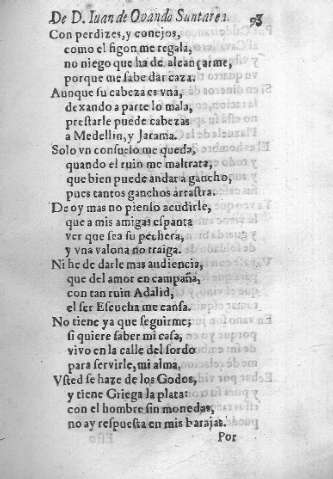 De D. Iuan de Ovando Santaren.
Con perdizes, y conejos,
como el figon me regala,
no niego que ha de alcançarme,
porque me sabe dar caza.
Aunque su cabeza es vna,
dexando a parte lo mala,
prestarle puede cabezas
a Medellin, y Jarama.
Solo vn consuelo me queda,
quando el ruin me maltrata,
que bien puede andar à gancho,
pues tantos ganchos arrastra.
De oy mas no pienso acudirle,
que a mis amigas espanta
ver que sea su pechera,
y vna valona no traiga.
Ni he de darle mas audiencia,
que del amor en campaña,
con tan ruin Adalid,
el ser Escucha me cansa.
No tiene ya que seguirme;
si quiere saber mi casa,
vivo en la calle del sordo
para servirle, mi alma,
Vsted se haze de los Godos,
y tiene Griega la plata:
con el hombre sin monedas,
no ay respuesta en mis barajas.
Por